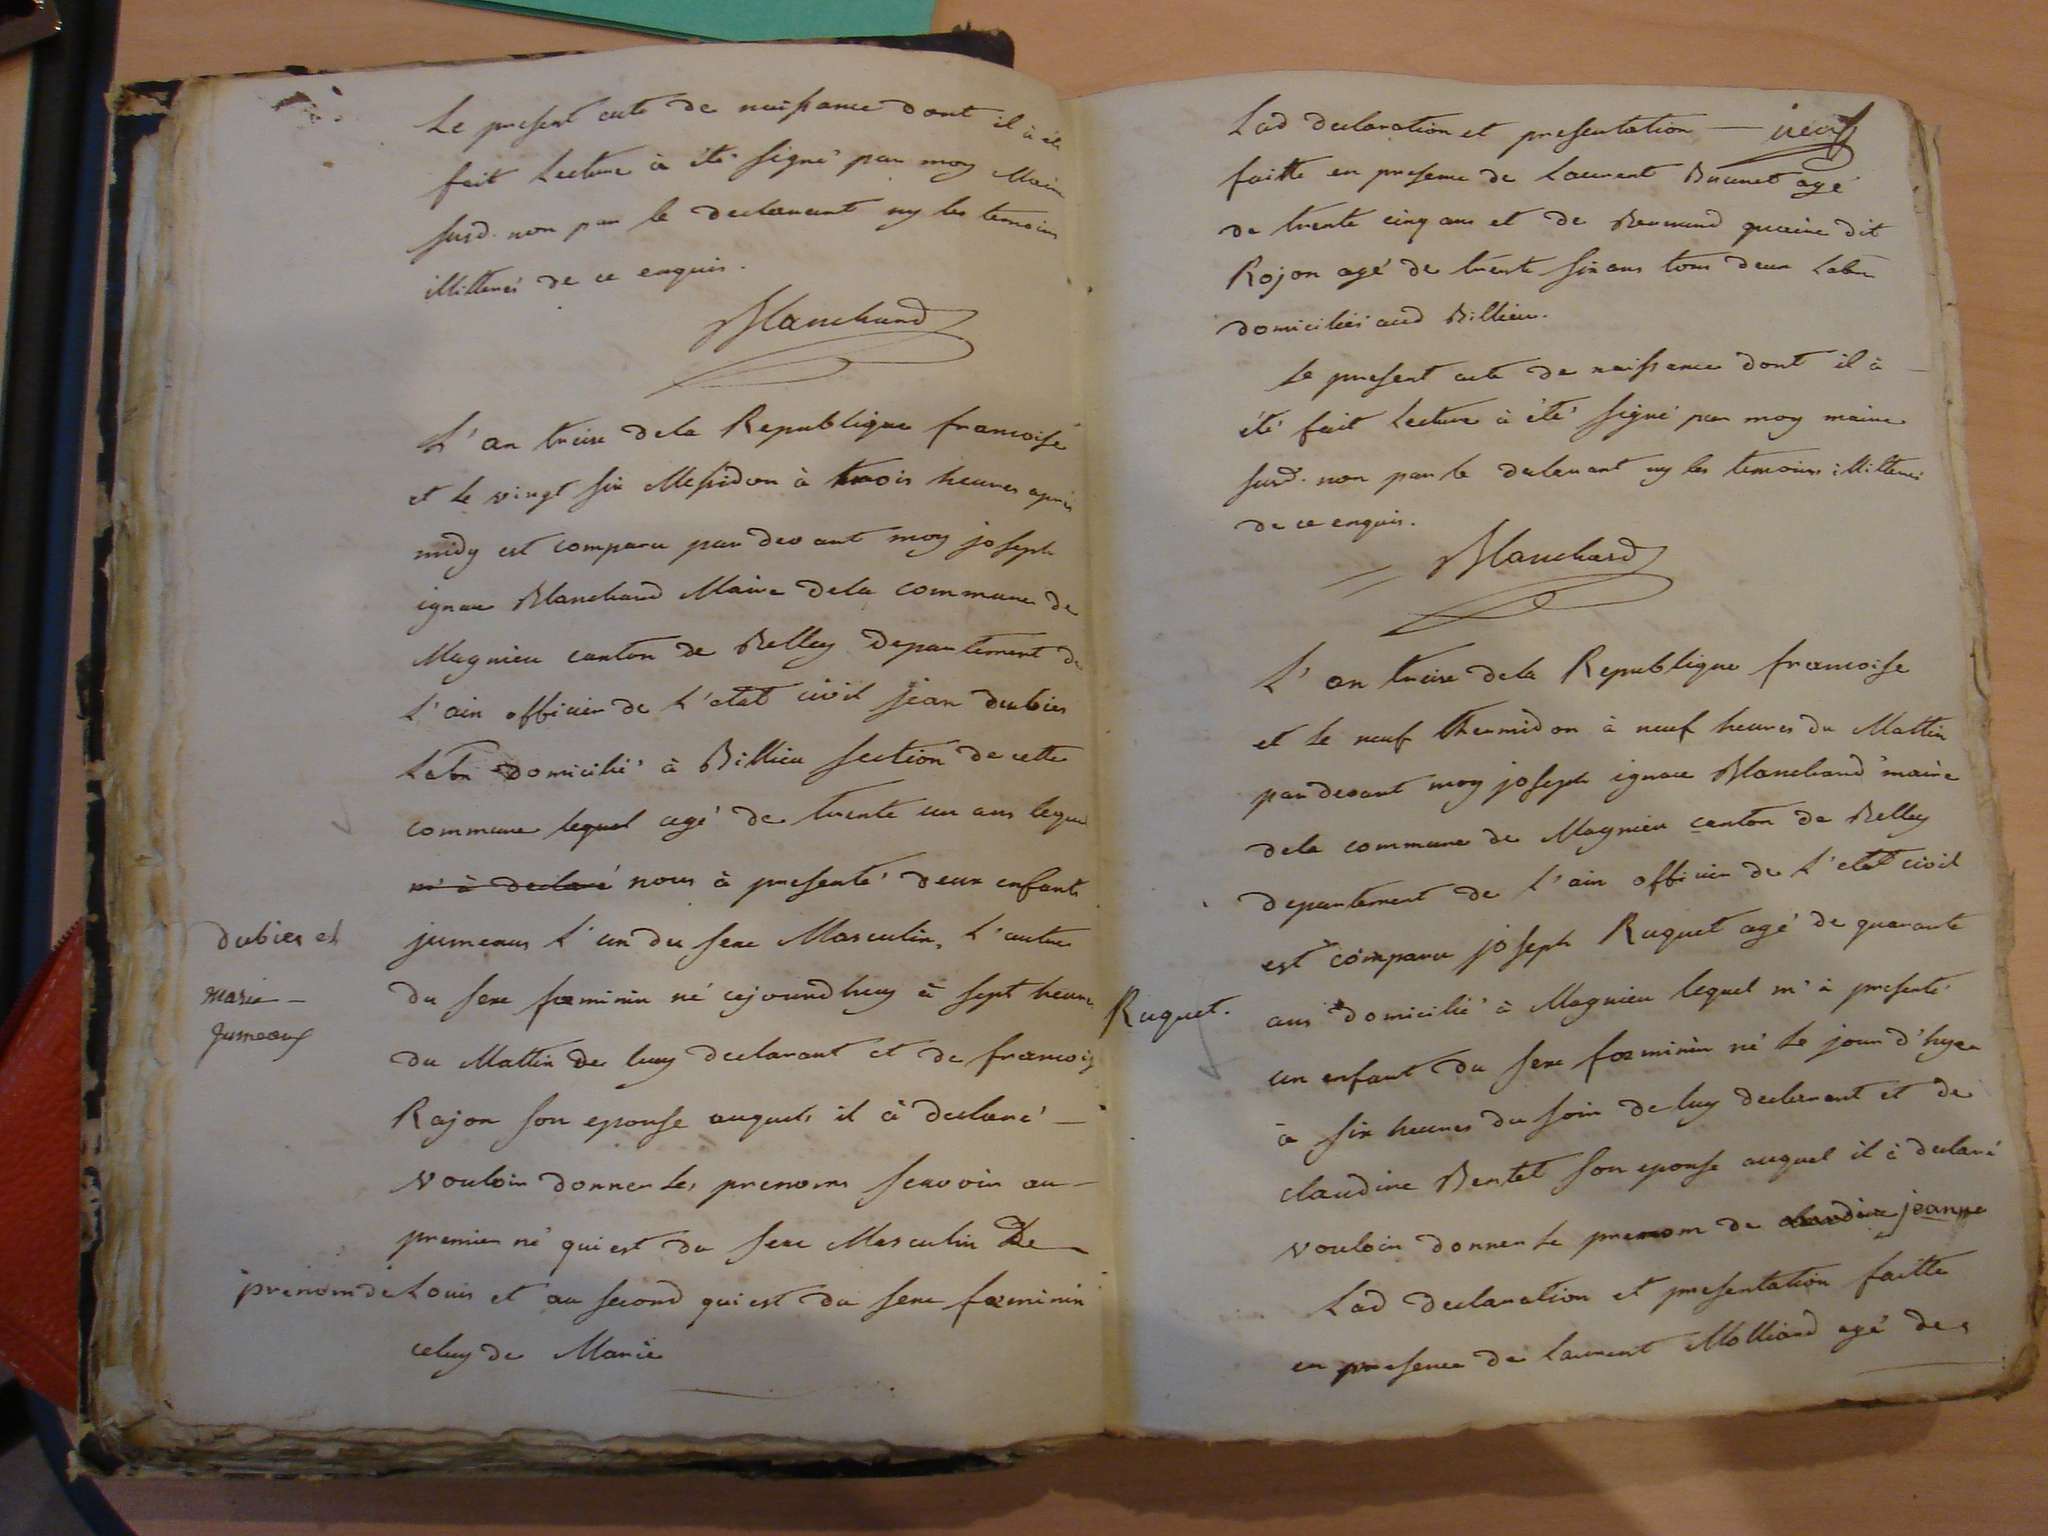 Le present acte de naissance dont il à été
fait Lecture à été signé par moy Maire
susd. non par le declarant ny les temoins
illitterés de ce enquis.
Blanchard
L'an treize dela Republique francoise
et le vingt six Messidor à trois heures apres
midy est comparu par devant moy joseph
ignace Blanchard Maire dela commune de
Magnieu canton de Belley Departement de
L'ain officier de L'etat civil jean dubier
Labr domicilié à Billieu section de cette
commune lequel agé de trente un ans lequel
m'à declaré nous à presenté deux enfants
dubier et
jumeaux L'un du sexe Masculin, L'autre
marie
du sexe foeminin né cejourdhuy à sept heures
jumeaux
du Mattin de luy declarant et de francoise
Rojon son epouse auquels il à declaré
vouloir donner les prenoms scavoir au
premier né qui est du sexe Masculin De
prenom de Louis et au second qui est du sexe foeminin
celuy de Marie
Lad declaration et presentation
faitte en presence de Laurent Brunet agé
de trente cinq ans et de dit
Rojon agé de trente six ans tous deux Labr
domiciliés aud Billieu.
Le present acte de naissance dont il à
été fait Lecture à été signé par moy maire
susd. non par le declarant ny les temoins illitterés
de ce enquis.
Blanchard
L'an treize dela Republique francoise
et le neuf thermidor à neuf heures du Mattin
pardevant moy joseph ignace Blanchard maire
dela commune de Magnieu canton de Belley
departement de L'ain officier de L'etat civil
est comparu joseph Ruquet agé de quarante
Ruquet.
ans domicilié à Magnieu lequel m'à presenté
un enfant du sexe foeminin né le jour d'hyer
à six heures du soir de luy declarant et de
claudine Bertet son epouse auquel il à declaré
vouloir donner le prenom de claudine jeanne
Lad declaration et presentation faitte
en presence de laurent Molliard agé de